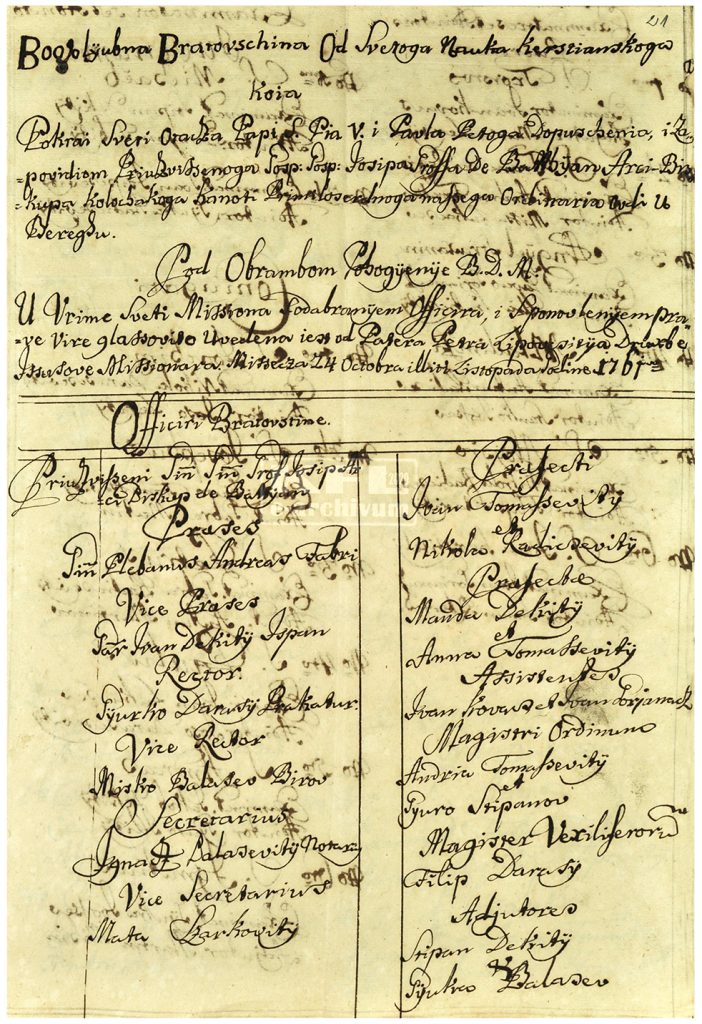 211
Bogolyubna Bratovschina Od Svetoga Nauka Kerstianskoga
koia
Pokrai Sveti Otacza Papi S. Pia V. i Pavla Petoga Dopuschenia, i Za-
=povidiom Priuzvissenoga Gosp: Gosp: Josipa Groffa De Batthyan Arci-Bis-
=kupa Kolochakoga Ordinaria ovdi U
Bereghu.
Pod Obrambom Pohogyenije B.D.M:
U Vrime Sveti Missiona Sodabranyem Officira, i Spomovlenyem pra-
=ve vire glassovito Uvedena iest od Patera Petra Lipovcsitya Druxbe
Issusove Missionara Missecza 24 Octobra illiti Listopada Godine 1761
Officiri Bratovstine.
Priuzvisseni Josip Ar-
ci Biskup de Battyan
Præses
Plebanus Andreas Fabri
Vice Præses
Ivan Dekity Ispan
Rector
Gyurko Darasy Prokatur
Vice Rector
Misko Balasev Birov
Secretarius
Ignatz Balasevity Notar
Vice Secretarius
Mata Harkovity
Præfecti
Ivan Tomassevity
et
Nikola Radicsevity
Præfectæ
Manda Dekity
et
Anna Tomassevity
Assistentes
Ivan Kovacs et Ivan
Magistri Ordinum
Andria Tomassevity
et
Gyuro Stipanov
Magister Vexiliferorum
Filip Darasy
Adjutores
Stipan Dekity
et
Gyuka Balasev